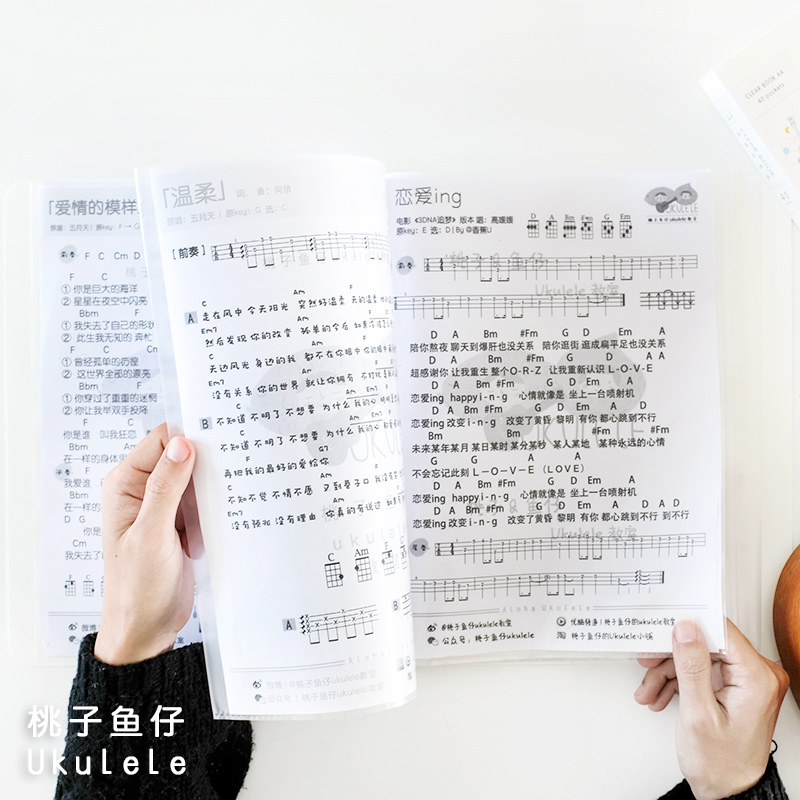 「爱情的模样
原唱：五月天 | 原key：F → G
前奏 F C Cm D
① 你是巨大的海洋
② 星星在夜空中闪亮
Bbm F
① 我失去了自己的形状
② 此生我无知的 奔忙
Bbm F
① 曾经孤单的彷徨
② 这世界全部的漂亮
Bbm F
① 你穿过了重重的迷
② 你让我举双手投降
Fm Bbm
你是谁 叫我狂恋
在一样的身体里
我爱谁
在一样的
D G
Cm
我失去了
「温柔」 词、曲：阿信
原唱：五月天 | 原key：G 选：C
[前奏]
C Am F
A 走在风中 今天阳光 突然好温柔 天的温柔
Em7 Am
然后发现 你的改变 孤单的今后
C Am
无边风光 身边的我 都不在你眼中
Em7 Am
没有关系 你的世界 就让你拥有
C Am
B 不知道 不明了 不想要 为什么 我的心
Em7 Am
不知道 不明了 不想要 为什么 我的心
F G7
再把我的最好的爱给你
C Am
不知不觉 不情不愿 又到巷子口
Em7 Am
没有预兆 没有理由 你真的有说过
C Am
A
微博 | @桃子鱼仔ukulele教室
公众号 | 桃子鱼仔ukulele
恋爱ing
电影《3DNA追梦》版本 唱：高媛媛
原key：E 选：D | By @香蕉U
UKULELE
桃子鱼仔ukulele教室
D A Bm #Fm G Em
前奏
桃子鱼仔
Ukulele 教室
D A Bm #Fm G D Em A
陪你熬夜 聊天到爆肝也没关系 陪你逛街 逛成扁平足也没关系
D A Bm #Fm G D A A
超感谢你 让我重生 整个O-R-Z 让我重新认识 L-O-V-E
D A Bm #Fm G D Em A
恋爱ing happyi-n-g 心情就像是 坐上一台喷射机
D A Bm #Fm G D Em A
恋爱ing 改变i-n-g 改变了黄昏 黎明 有你 都心跳到不行
Bm Bm #Fm #Fm
未来某年某月 某日某时 某分某秒 某人某地 某种永远的心情
G D Em A
不会忘记此刻 L-O-V-E（LOVE）
D A Bm #Fm G D Em A
恋爱ing happyi-n-g 心情就像是 坐上一台喷射机
D A Bm #Fm G D Em A D A D
恋爱ing 改变i-n-g 改变了黄昏 黎明 有你 都心跳到不行 到不行
尾奏
Aloha Ukulele
@桃子鱼仔ukulele教室
优酷频道：桃子鱼仔的ukulele教室
公众号：桃子鱼仔ukulele
淘 桃子鱼仔的Ukulele小铺
CLEAR BOOK A4
40 pockets
桃子鱼仔
Ukulele